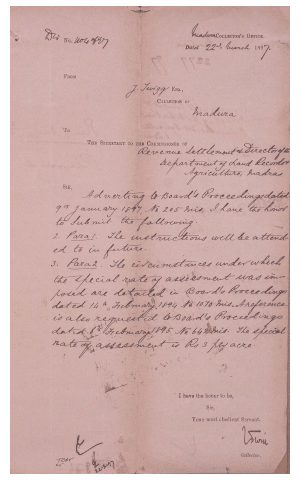 Madura COLLECTOR'S OFFICE,
Dated 22nd March 1897
FROM
J. Twigg Esq,
COLLECTOR OF
Madura
TO
THE SECRETARY TO THE COMMISSIONER OF
Revenue Settlement & Director
Department of Land Records
Agriculture, Madras
SIR,
Adverting to Board's Proceedings dated
9th January 1897 No 205 Mis, I have the honor
to submit the following
Para 1. The instructions will be attend
ed to in future.
3. Para 2. The circumstances under which
the special rate of assessment was im-
posed are detailed in Board's Proceedings
dated 14th February 1894 No Mis. A reference
is also requested to Board's Proceedings
dated February 1895 No Mis. The special
rate of assessment is Rs 3 per acre.
I have the honor to be,
Sir,
Your most obedient Servant,
Collector.